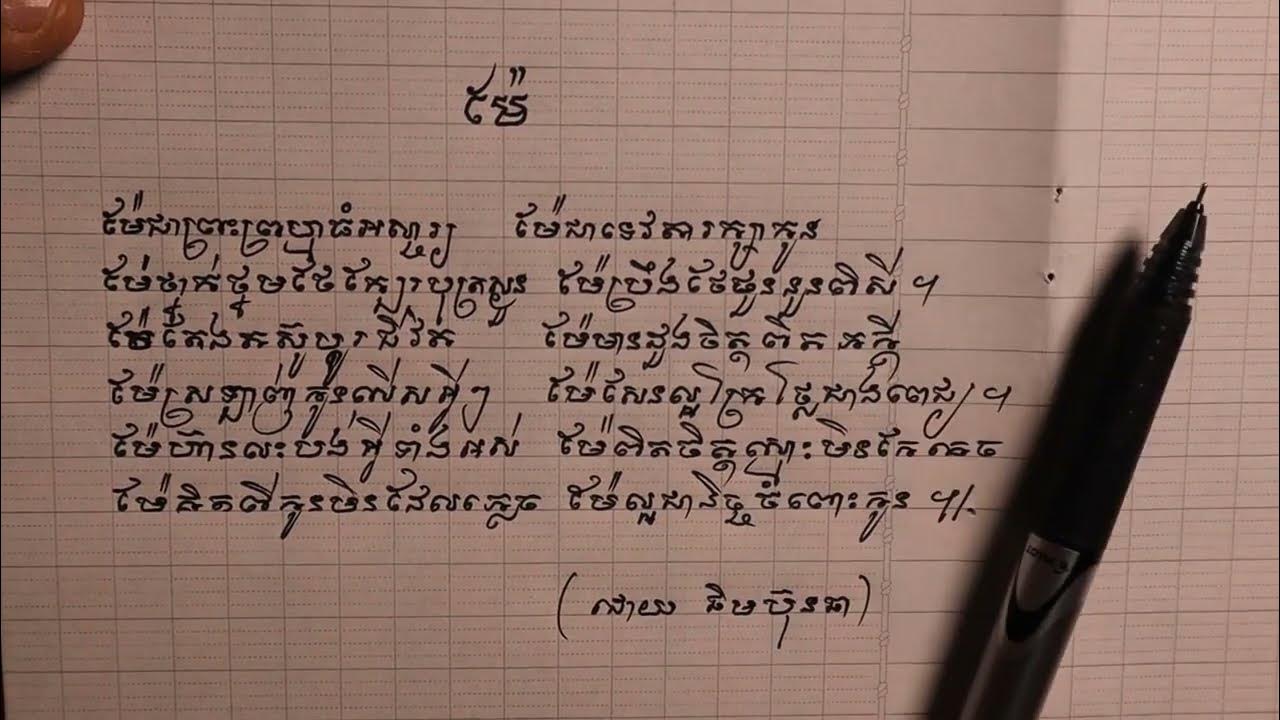 ម៉ែ
ម៉ែជាព្រះព្រហ្មាធំអស្ចារ្យ ម៉ែជាទេវតារក្សាកូន
ម៉ែថ្នាក់ថ្នមថែក្បែរបុត្រស្ងួន ម៉ែប្រឹងថែផ្ចួននួនពិសី ។
ម៉ែតែងតស៊ូប្ដូរជីវិត ម៉ែមានដួងចិត្តពិតភក្ដី
ម៉ែស្រឡាញ់កូនលើសអ្វីៗ ម៉ែសែនល្អក្រៃថ្លៃជាងពេជ្រ ។
ម៉ែហ៊ានលះបង់អ្វីទាំងអស់ ម៉ែពិតចិត្តស្មោះមិនកែគេច
ម៉ែគិតពីកូនមិនដែលភ្លេច ម៉ែល្អជានិច្ចចំពោះកូន ៕
(ដោយ ធិមប៊ុនធា)